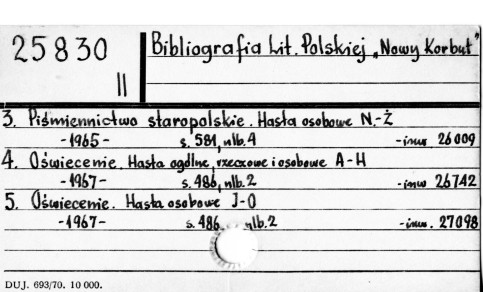 25830 Bibliografia Lit. Polskiej „Nowy Korbut"
II
3. Piśmiennictwo staropolskie. Hasła osobowe N.-Ż
-1965- s. 581, nlb. 4 -inw 26009
4. Oświecenie. Hasła ogólne, rzeczowe i osobowe A-H
-1967- s. 486, nlb. 2 -inw 26742
5. Oświecenie. Hasła osobowe J-O
-1967- s. 486 nlb. 2 -inw. 27098
DUJ. 693/70. 10 000.